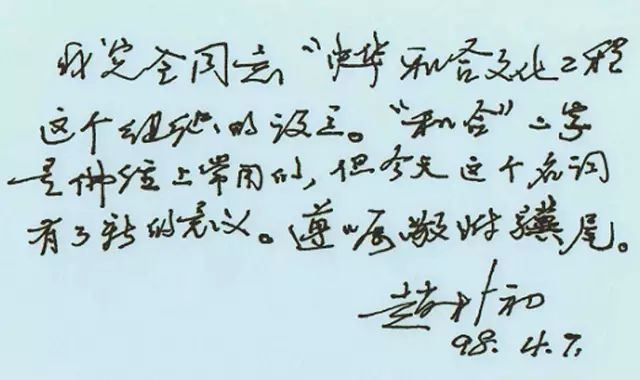 我完全同意“中华和合文化工程
这个组织”的设立。“和合”二字
是佛经上常用的，但今天这个名词
有了新的意义。遵嘱敬附骥尾。
赵朴初
98. 4. 7.